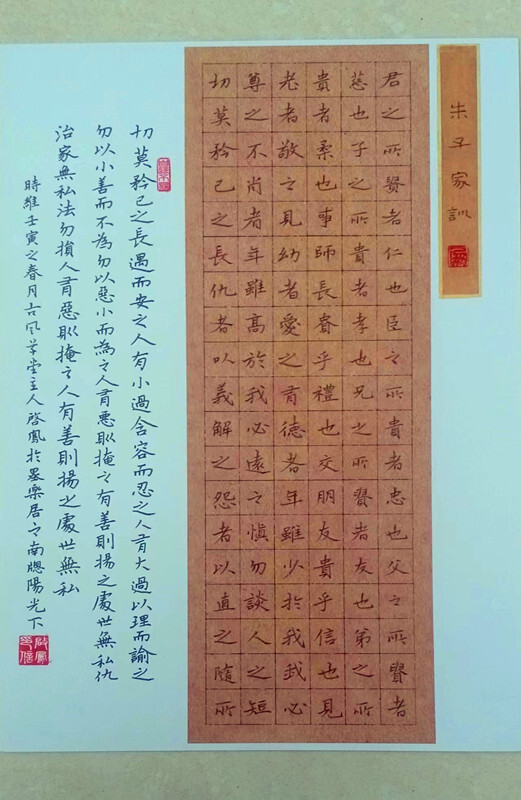 朱子家訓
君之所賢者仁也臣之所貴者忠也父之所賢者
慈也子之所貴者孝也兄之所賢者友也弟之所
貴者柔也事師長貴乎禮也交朋友貴乎信也見
老者敬之見幼者愛之有德者年雖少於我我必
尊之不肖者年雖高於我必遠之慎勿談人之短
切莫矜己之長仇者以義解之怨者以直之隨所
切莫矜己之長遇而安之人有小過含容而忍之人有大過以理而諭之
勿以小善而不為勿以惡小而為之人有悪則掩之有善則揚之處世無私仇
治家無私法勿損人有惡則掩之人有善則揚之處世無私
時維壬寅之春月古風學堂主人啓鳳於墨樂居之南窗陽光下